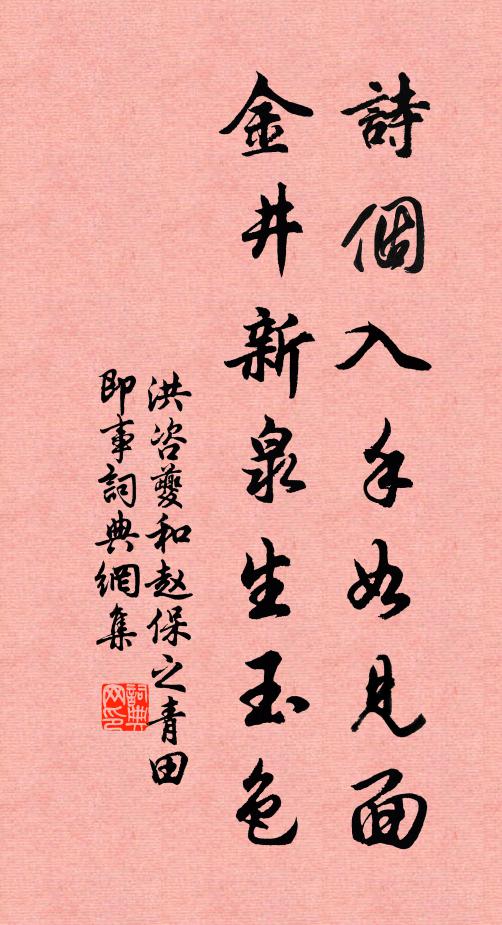 詩個入手如見面
金井新泉生玉色
洪咨夔和赵保之青田
即事詞典網集
詞典
网印